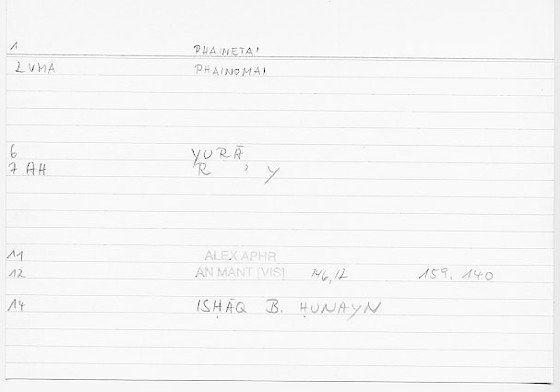 1 PHAINETAI
2 VMA PHAINOMAI
6 YURĀ
7 AH R ʾ Y
11 ALEX APHR
12 AN MANT [VIS] 146,17 159,140
14 ISḤĀQ B. ḤUNAYN